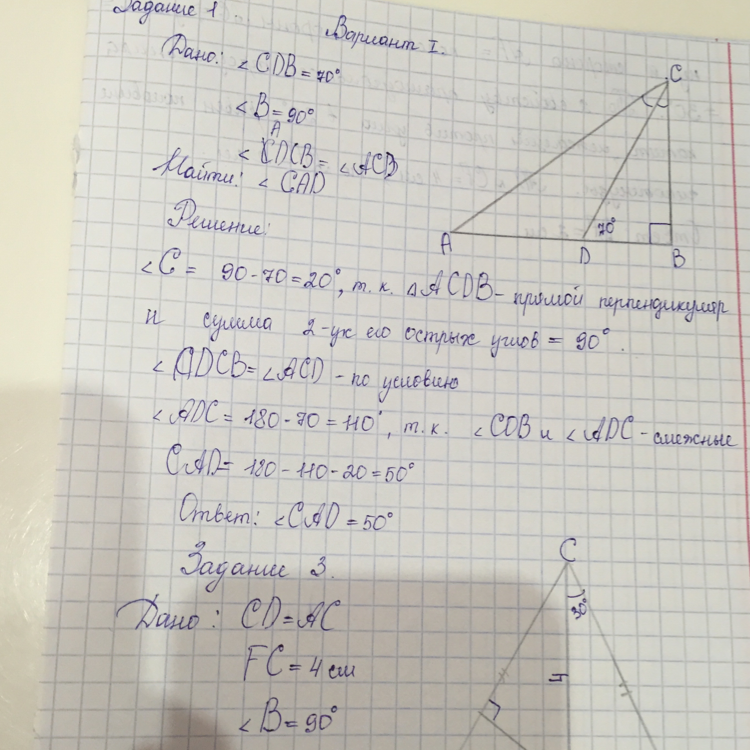 Задание 1
Вариант I.
Дано: ∠CDB = 70°
∠B = 90°
A
∠DCB = ∠ACD
Найти: ∠CAD
C
70°
A D B
Решение:
∠C = 90 - 70 = 20°, т.к. △ACDB - прямой перпендикуляр
и сумма 2-ух его острых углов = 90°.
∠DCB = ∠ACD - по условию
∠ADC = 180 - 70 = 110°, т.к. ∠CDB и ∠ADC - смежные
CAD = 180 - 110 - 20 = 50°
Ответ: ∠CAD = 50°
Задание 3.
Дано: CD = AC
FC = 4 см
∠B = 90°
C
30°